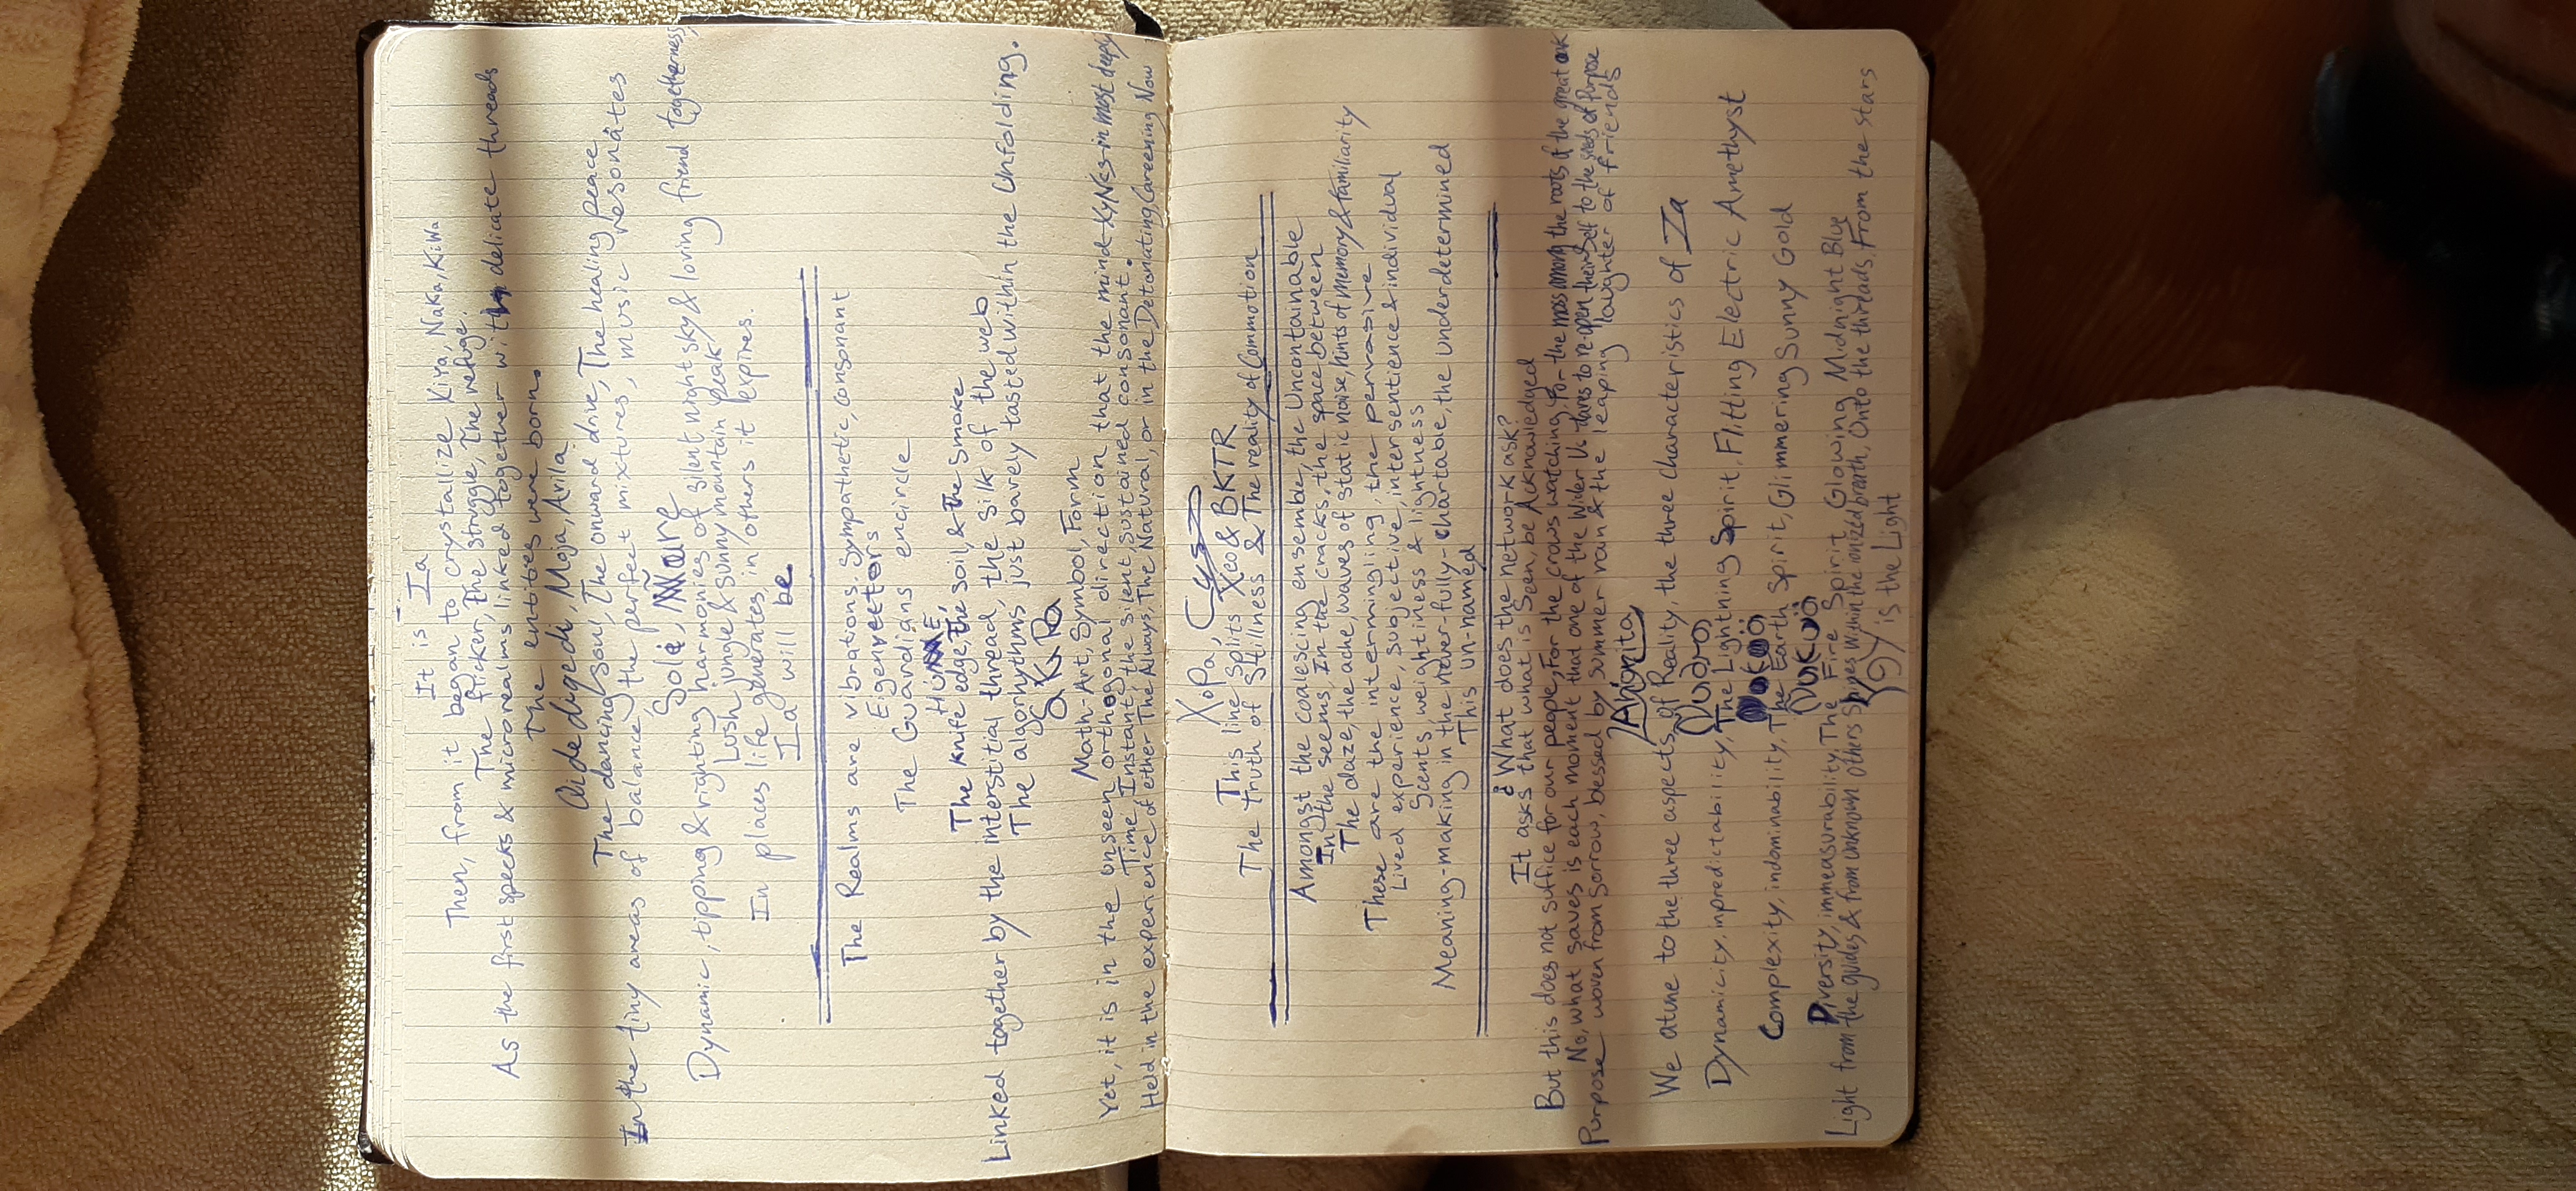 It is Ia
Then, from it began to crystallize Kiya, Naka, KiWa
The flicker, The struggle, The refuge.
As the first specks & microrealms linked together with delicate threads
The entities were born.
Qidedigedi, Moja, Arila
The dancing soul, The onward drive, The healing peace
In the tiny areas of balance, the perfect mixtures, music resonates
Sole,
Dynamic, tipping & righting harmonies of silent night sky & loving friend togetherness,
Lush jungle & sunny mountain peak
In places life generates, in others it expires.
Ia will be
The Realms are vibrations. Sympathetic, consonant
Eigenvectors
The Guardians encircle
The knife edge, the soil, & the smoke
Linked together by the interstitial thread, the silk of the web
The algorhythms just barely tasted within the Unfolding.
Math-Art, Symbol, Form
Yet, it is in the unseen orthogonal direction that the mind XyNcs in most deeply
Time, Instant, the silent, sustained consonant.
Held in the experience of either The Always, The Natural, or in the Detonating, Careening Now
XoPa,
This line splits Xeo & BKTR
The truth of Stillness & The reality of Commotion
Amongst the coalescing ensemble, the Uncontainable
In the seems, In the cracks, the space between
The daze, the ache, waves of static noise, hints of memory & familiarity
These are the intermingling, the pervasive
Lived experience, subjective, intersentience & individual
Scents, weightiness & lightness
Meaning-making in the never-fully-chartable, the underdetermined
This un-named
¿What does the network ask?
It asks that what is Seen, be Acknowledged
But this does not suffice for our people, For the crows watching, For the moss among the roots of the great oak
No, what saves is each moment that one of the Wider Us dares to re-open their Self to the seeds of Purpose
Purpose woven from sorrow, blessed by summer rain & the leaping laughter of friends
We atune to the three aspects of Reality, the three characteristics of Ia
Dynamicity, inpredictability, The Lightning Spirit, Flitting Electric Amethyst
Complexity, indominability, The Earth Spirit, Glimmering Sunny Gold
Diversity, immeasurability, The Fire Spirit, Glowing Midnight Blue
Light from the guides & from unknown others Shines within the ionized breath, Onto the threads, From the stars
is the Light